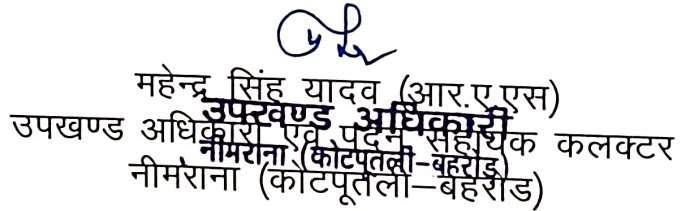 महेन्द्र सिंह यादव (आर.ए.एस)
उपखण्ड अधिकारी
उपखण्ड अधिकारी एवं पदेन सहायक कलक्टर
नीमराना (कोटपूतली-बहरोड)
नीमराना (कोटपूतली–बहरोड)